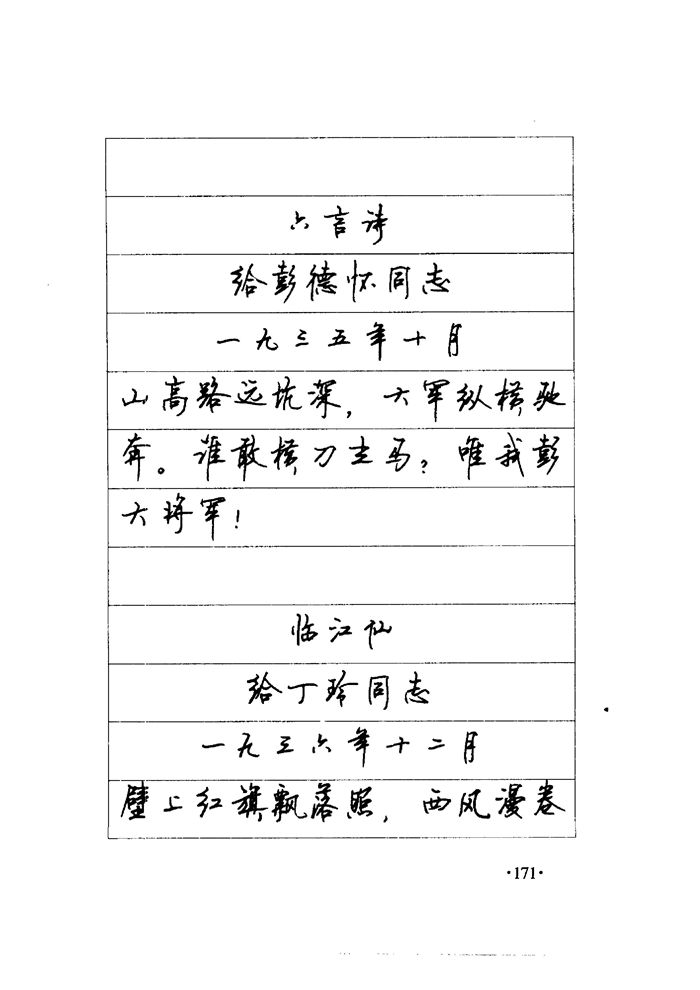 六言诗
给彭德怀同志
一九三五年十月
山高路远坑深，大军纵横驰
奔。谁敢横刀立马？唯我彭
大将军！
临江仙
给丁玲同志
一九三六年十二月
壁上红旗飘落照，西风漫卷
·171·